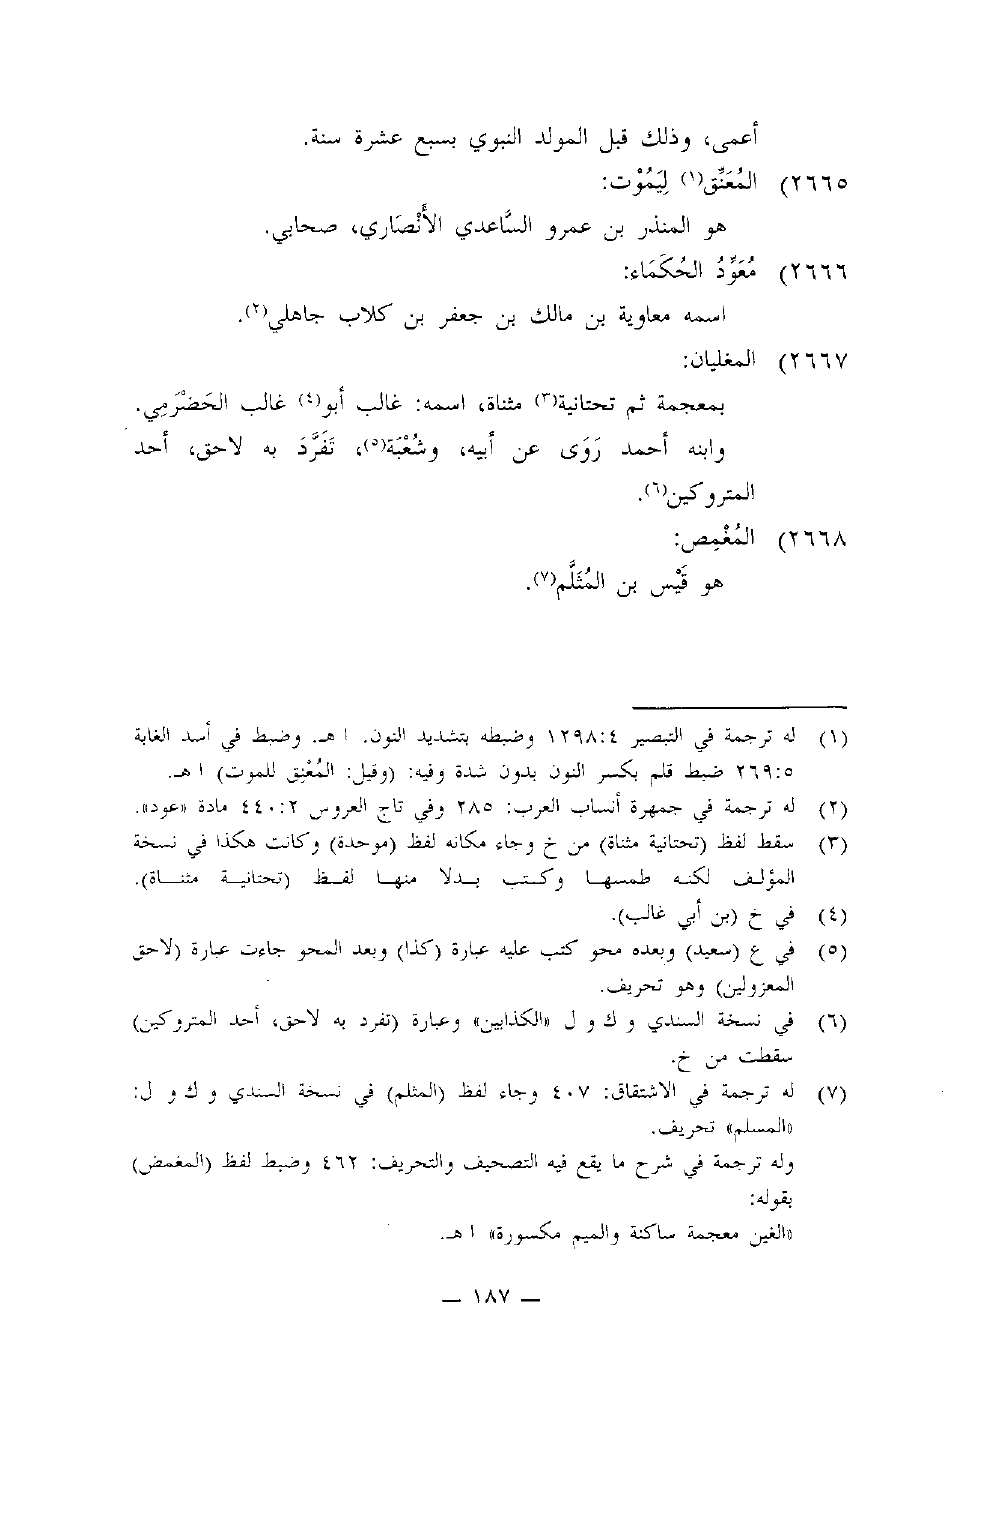 أعمى، وذلك قبل المولد النبوي بسبع عشرة سنة.
٢٦٦٥) المُعَنِّق(١) لِيَمُوْت:
هو المنذر بن عمرو السَّاعدي الأَنْصَاري، صحابي.
٢٦٦٦) مُعَوِّدُ الحُكَمَاء:
اسمه معاوية بن مالك بن جعفر بن كلاب جاهلي(٢).
٢٦٦٧) المغليان:
بمعجمة ثم تحتانية(٣) مثناة، اسمه: غالب أبو(٤) غالب الحَضْرَمِي.
وابنه أحمد رَوَى عن أبيه، وشُعْبَة(٥)، تَفَرَّدَ به لاحق، أحد
المتروكين(٦).
٢٦٦٨) المُغْمِص:
هو قَيْس بن المُثَلَّم(٧).
(١) له ترجمة في التبصير ١٢٩٨:٤ وضبطه بتشديد النون. ا هـ. وضبط في أسد الغابة
٢٦٩:٥ ضبط قلم بكسر النون بدون شدة وفيه: (وقيل: المُعْنِق للموت) ا هـ.
(٢) له ترجمة في جمهرة أنساب العرب: ٢٨٥ وفي تاج العروس ٤٤٠:٢ مادة «عود».
(٣) سقط لفظ (تحتانية مثناة) من خ وجاء مكانه لفظ (موحدة) وكانت هكذا في نسخة
المؤلف لكنه طمسها وكتب بدلا منها لفظ (تحتانية مثناة).
(٤) في خ (بن أبي غالب).
(٥) في ع (سعيد) وبعده محو كتب عليه عبارة (كذا) وبعد المحو جاءت عبارة (لاحق
المعزولين) وهو تحريف.
(٦) في نسخة السندي و ك و ل «الكذابين» وعبارة (تفرد به لاحق، أحد المتروكين)
سقطت من خ.
(٧) له ترجمة في الاشتقاق: ٤٠٧ وجاء لفظ (المثلم) في نسخة السندي و ك و ل:
«المسلم» تحريف.
وله ترجمة في شرح ما يقع فيه التصحيف والتحريف: ٤٦٢ وضبط لفظ (المغمض)
بقوله:
«الغين معجمة ساكنة والميم مكسورة» ا هـ.
— ١٨٧ —